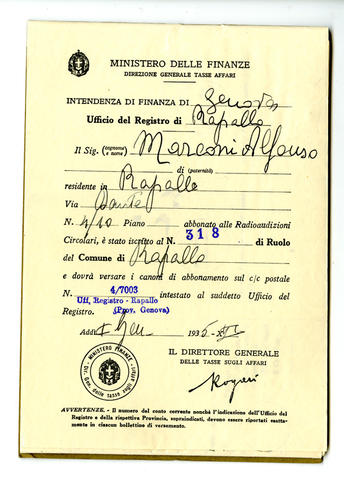 MINISTERO DELLE FINANZE
DIREZIONE GENERALE TASSE AFFARI
INTENDENZA DI FINANZA DI Genova
Ufficio del Registro di Rapallo
Il Sig. (cognome e nome) Marconi Alfonso
di (paternità)
residente in Rapallo
Via Dante
N. 4/10 Piano abbonato alle Radioaudizioni
Circolari, è stato iscritto al N. 318 di Ruolo
del Comune di Rapallo
e dovrà versare i canoni di abbonamento sul c/c postale
N. 4/7003 intestato al suddetto Ufficio del
Uff. Registro - Rapallo
Registro. (Prov. Genova)
Addì 1 Gen 1935 -
IL DIRETTORE GENERALE
DELLE TASSE SUGLI AFFARI
MINISTERO FINANZE
Dir. Gen. delle tasse sugli affari
AVVERTENZE. - Il numero del conto corrente nonchè l'indicazione dell'Ufficio del
Registro e della rispettiva Provincia, sopraindicati, devono essere riportati esatta-
mente in ciascun bollettino di versamento.